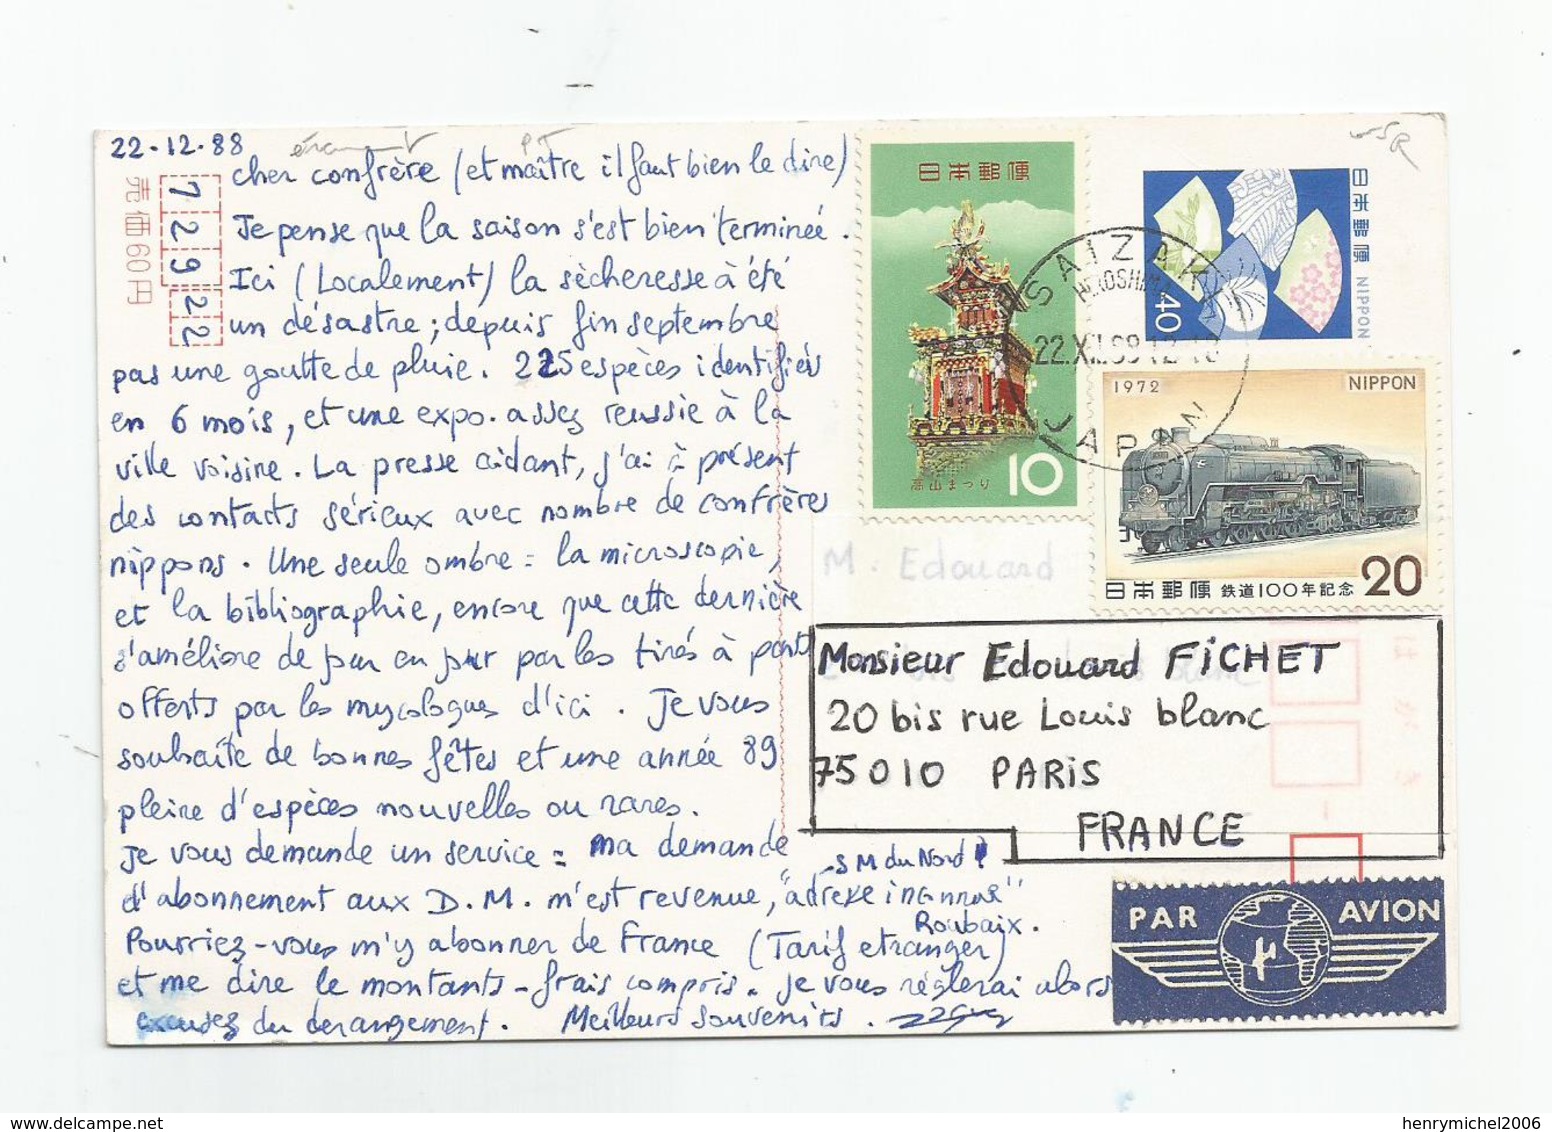 22-12-88
cher confrère (et maître il faut bien le dire)
Je pense que la saison s'est bien terminée.
Ici (Localement) la sècheresse à été
un désastre; depuis fin septembre
pas une goutte de pluie. 225 espèces identifiés
en 6 mois, et une expo. assez reussie à la
ville voisine. La presse aidant, j'ai à présent
des contacts sérieux avec nombre de confrères
nippons. Une seule ombre = la microscopie,
et la bibliographie, encore que cette dernière
s'améliore de jour en jour par les tirés à parts
offerts par les mycologues d'ici. Je vous
souhaite de bonnes fêtes et une année 89
pleine d'espèces nouvelles ou rares.
Je vous demande un service = ma demande
d'abonnement aux D.M. m'est revenue, "adresse inconnue"
-S M du Nord!
Roubaix.
Pourriez-vous m'y abonner de France (Tarif etranger)
et me dire le montants - frais compris. Je vous réglerai alors
excusez du derangement. Meilleurs souvenirs.
売価60円
72922
日本郵便
高山まつり
10
日本郵便 NIPPON
40
SAIZAK
HIROSHIMA
22.XII.
JAPAN
1972 NIPPON
日本郵便 鉄道100年記念 20
M. Edouard
Monsieur Edouard FiCHET
20 bis rue Louis blanc
75010 PARiS
FRANCE
PAR AVION
henrymichel2006